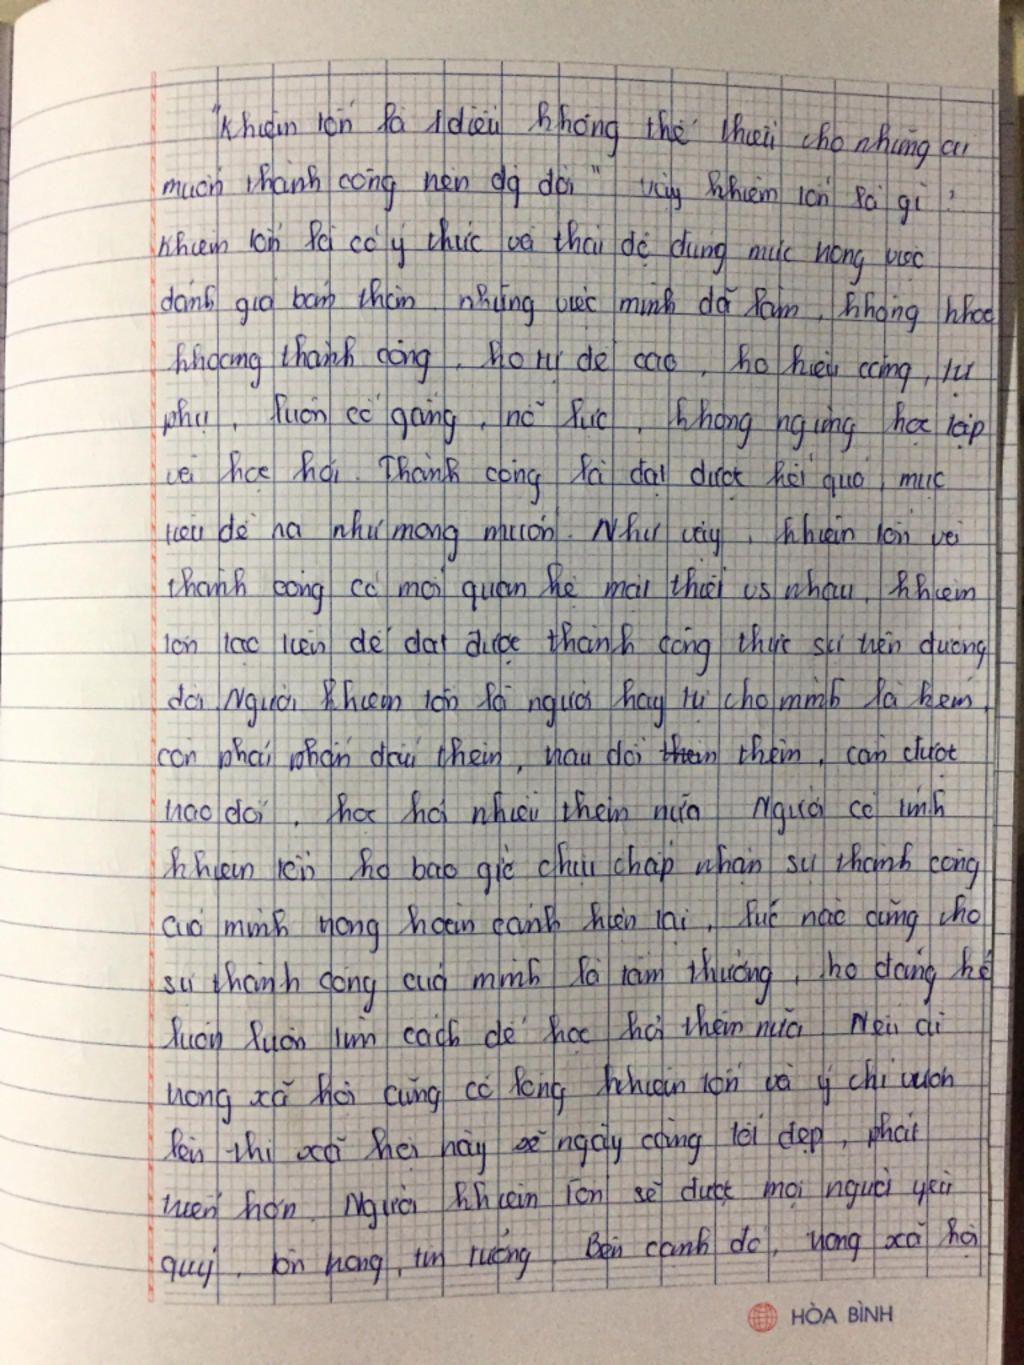 "Khiêm tốn là 1 điều không thể thiếu cho những ai
muốn thành công trên đg đời" vậy khiêm tốn là gì ?
Khiêm tốn là có ý thức và thái độ đúng mực trong việc
đánh giá bản thân những việc mình đã làm, không khoe
khoang thành công, ko tự đề cao, ko hiếu thắng, tự
phụ, luôn cố gắng, nỗ lực, không ngừng học tập
và học hỏi. Thành công là đạt được kết quả, mục
tiêu đề ra như mong muốn. Như vậy, khiêm tốn và
thành công có mối quan hệ mật thiết vs nhau, khiêm
tốn tạo tiền đề đạt được thành công thực sự trên đường
đời Người khiêm tốn là người hay tự cho mình là kém,
còn phải phấn đấu thêm, trau dồi thêm, cần được
trao đổi, học hỏi nhiều thêm nữa Người có tính
khiêm tốn ko bao giờ chịu chấp nhận sự thành công
của mình trong hoàn cảnh hiện tại, lúc nào cũng cho
sự thành công của mình là tầm thường, ko đáng kể
luôn luôn tìm cách để học hỏi thêm nữa Nếu ai
trong xã hội cũng có lòng khiêm tốn và ý chí vươn
lên thì xã hội này sẽ ngày càng tốt đẹp, phát
triển hơn. Người khiêm tốn sẽ được mọi người yêu
quý, tôn trọng, tin tưởng. Bên cạnh đó, trong xã hội
HÒA BÌNH